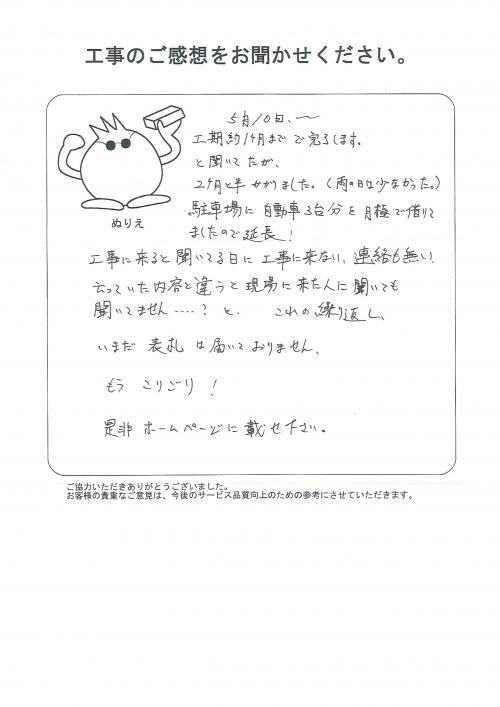 工事のご感想をお聞かせください。
5月10日、〜
工期約1ヶ月までで完了します。
と聞いてたが、
2ヶ月と半かかりました。(雨の日は少なかった。)
駐車場に自動車3台分を月極で借りて
ましたので延長!
ぬりえ
工事に来ると聞いてる日に工事に来ない、連絡も無い!
云っていた内容と違うと現場に来た人に聞いても
聞いてません……?と、 これの繰り返し、
いまだ 表札は届いておりません、
もう こりごり!
是非ホームページに載せ下さい。
ご協力いただきありがとうございました。
お客様の貴重なご意見は、今後のサービス品質向上のための参考にさせていただきます。